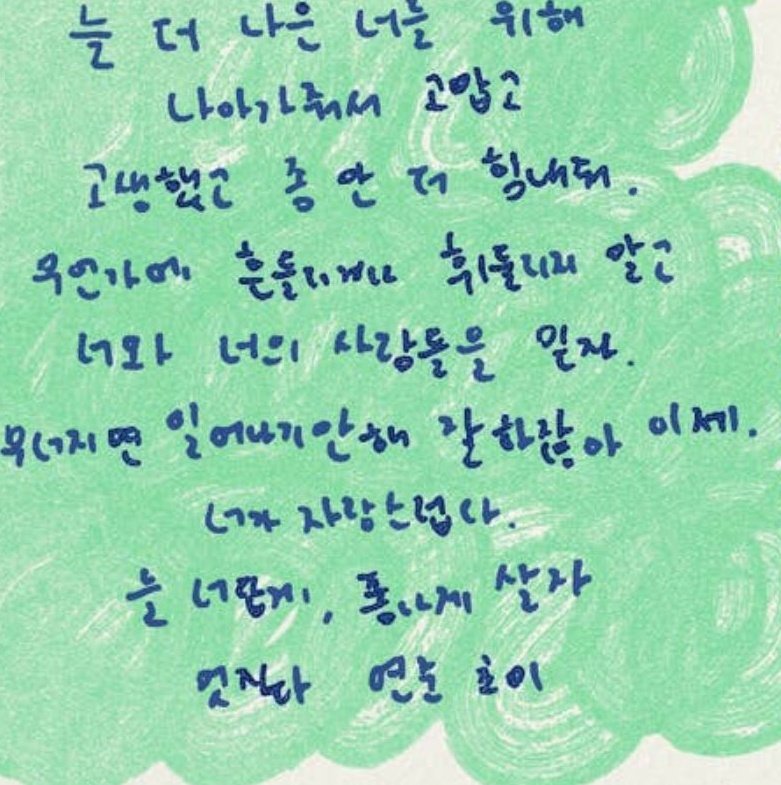 늘 더 나은 너를 위해
나아가줘서 고맙고
고생했고 좀 만 더 힘내줘.
무언가에 흔들리거나 휘둘리지 말고
너와 너의 사랑들을 믿자.
무너지면 일어나기만해 잘 하잖아 이제.
너가 자랑스럽다.
늘 너답게, 폼나게 살자
멋지다 연준